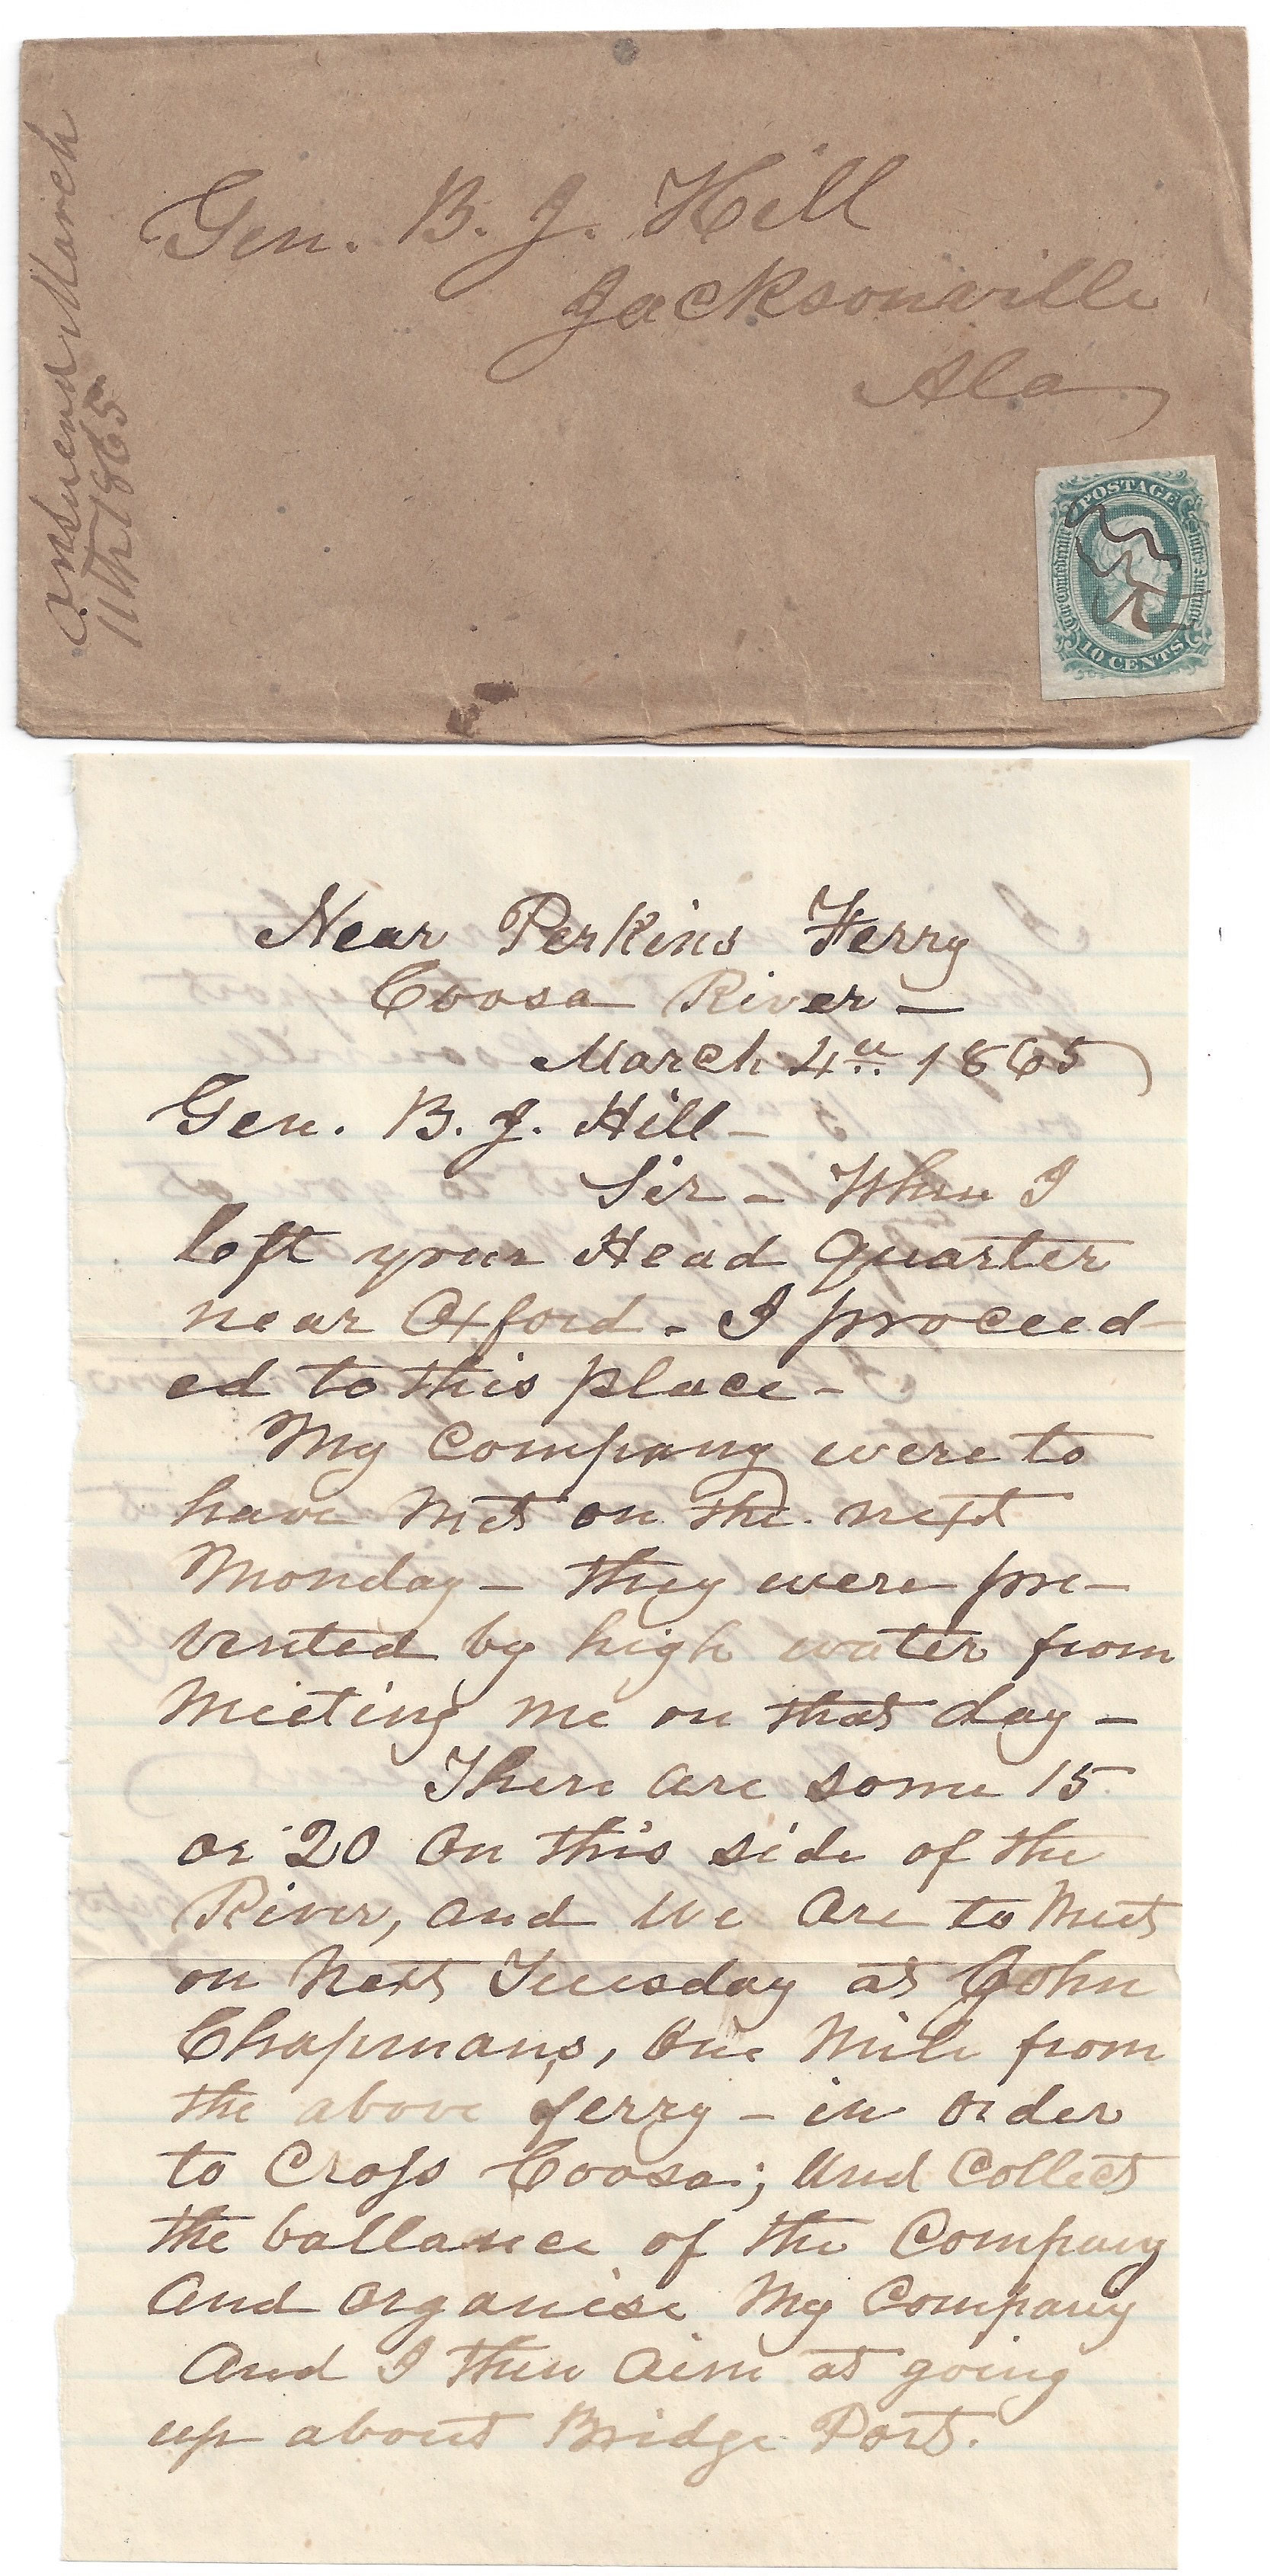 Gen. B. J. Hill
Jacksonville
Ala
Answerd March
11th 1865
POSTAGE
The Confederate States of America
10 CENTS
Near Perkins Ferry
Coosa River —
March 4th 1865
Gen. B. J. Hill —
Sir — When I
left your Head Quarter
near Oxford - I proceed
ed to this place -
My Company were to
have Met on the next
Monday — they were pre-
vented by high water from
Meeting me on that day —
There are some 15
or 20 On this side of the
River, and We Are to Meet
on Next Tuesday at John
Chapmans, One Mile from
the above ferry — in order
to Cross Coosa; And Collect
the ballance of the Company
And organise My Company
And I then Aim at going
up about Bridge Port.